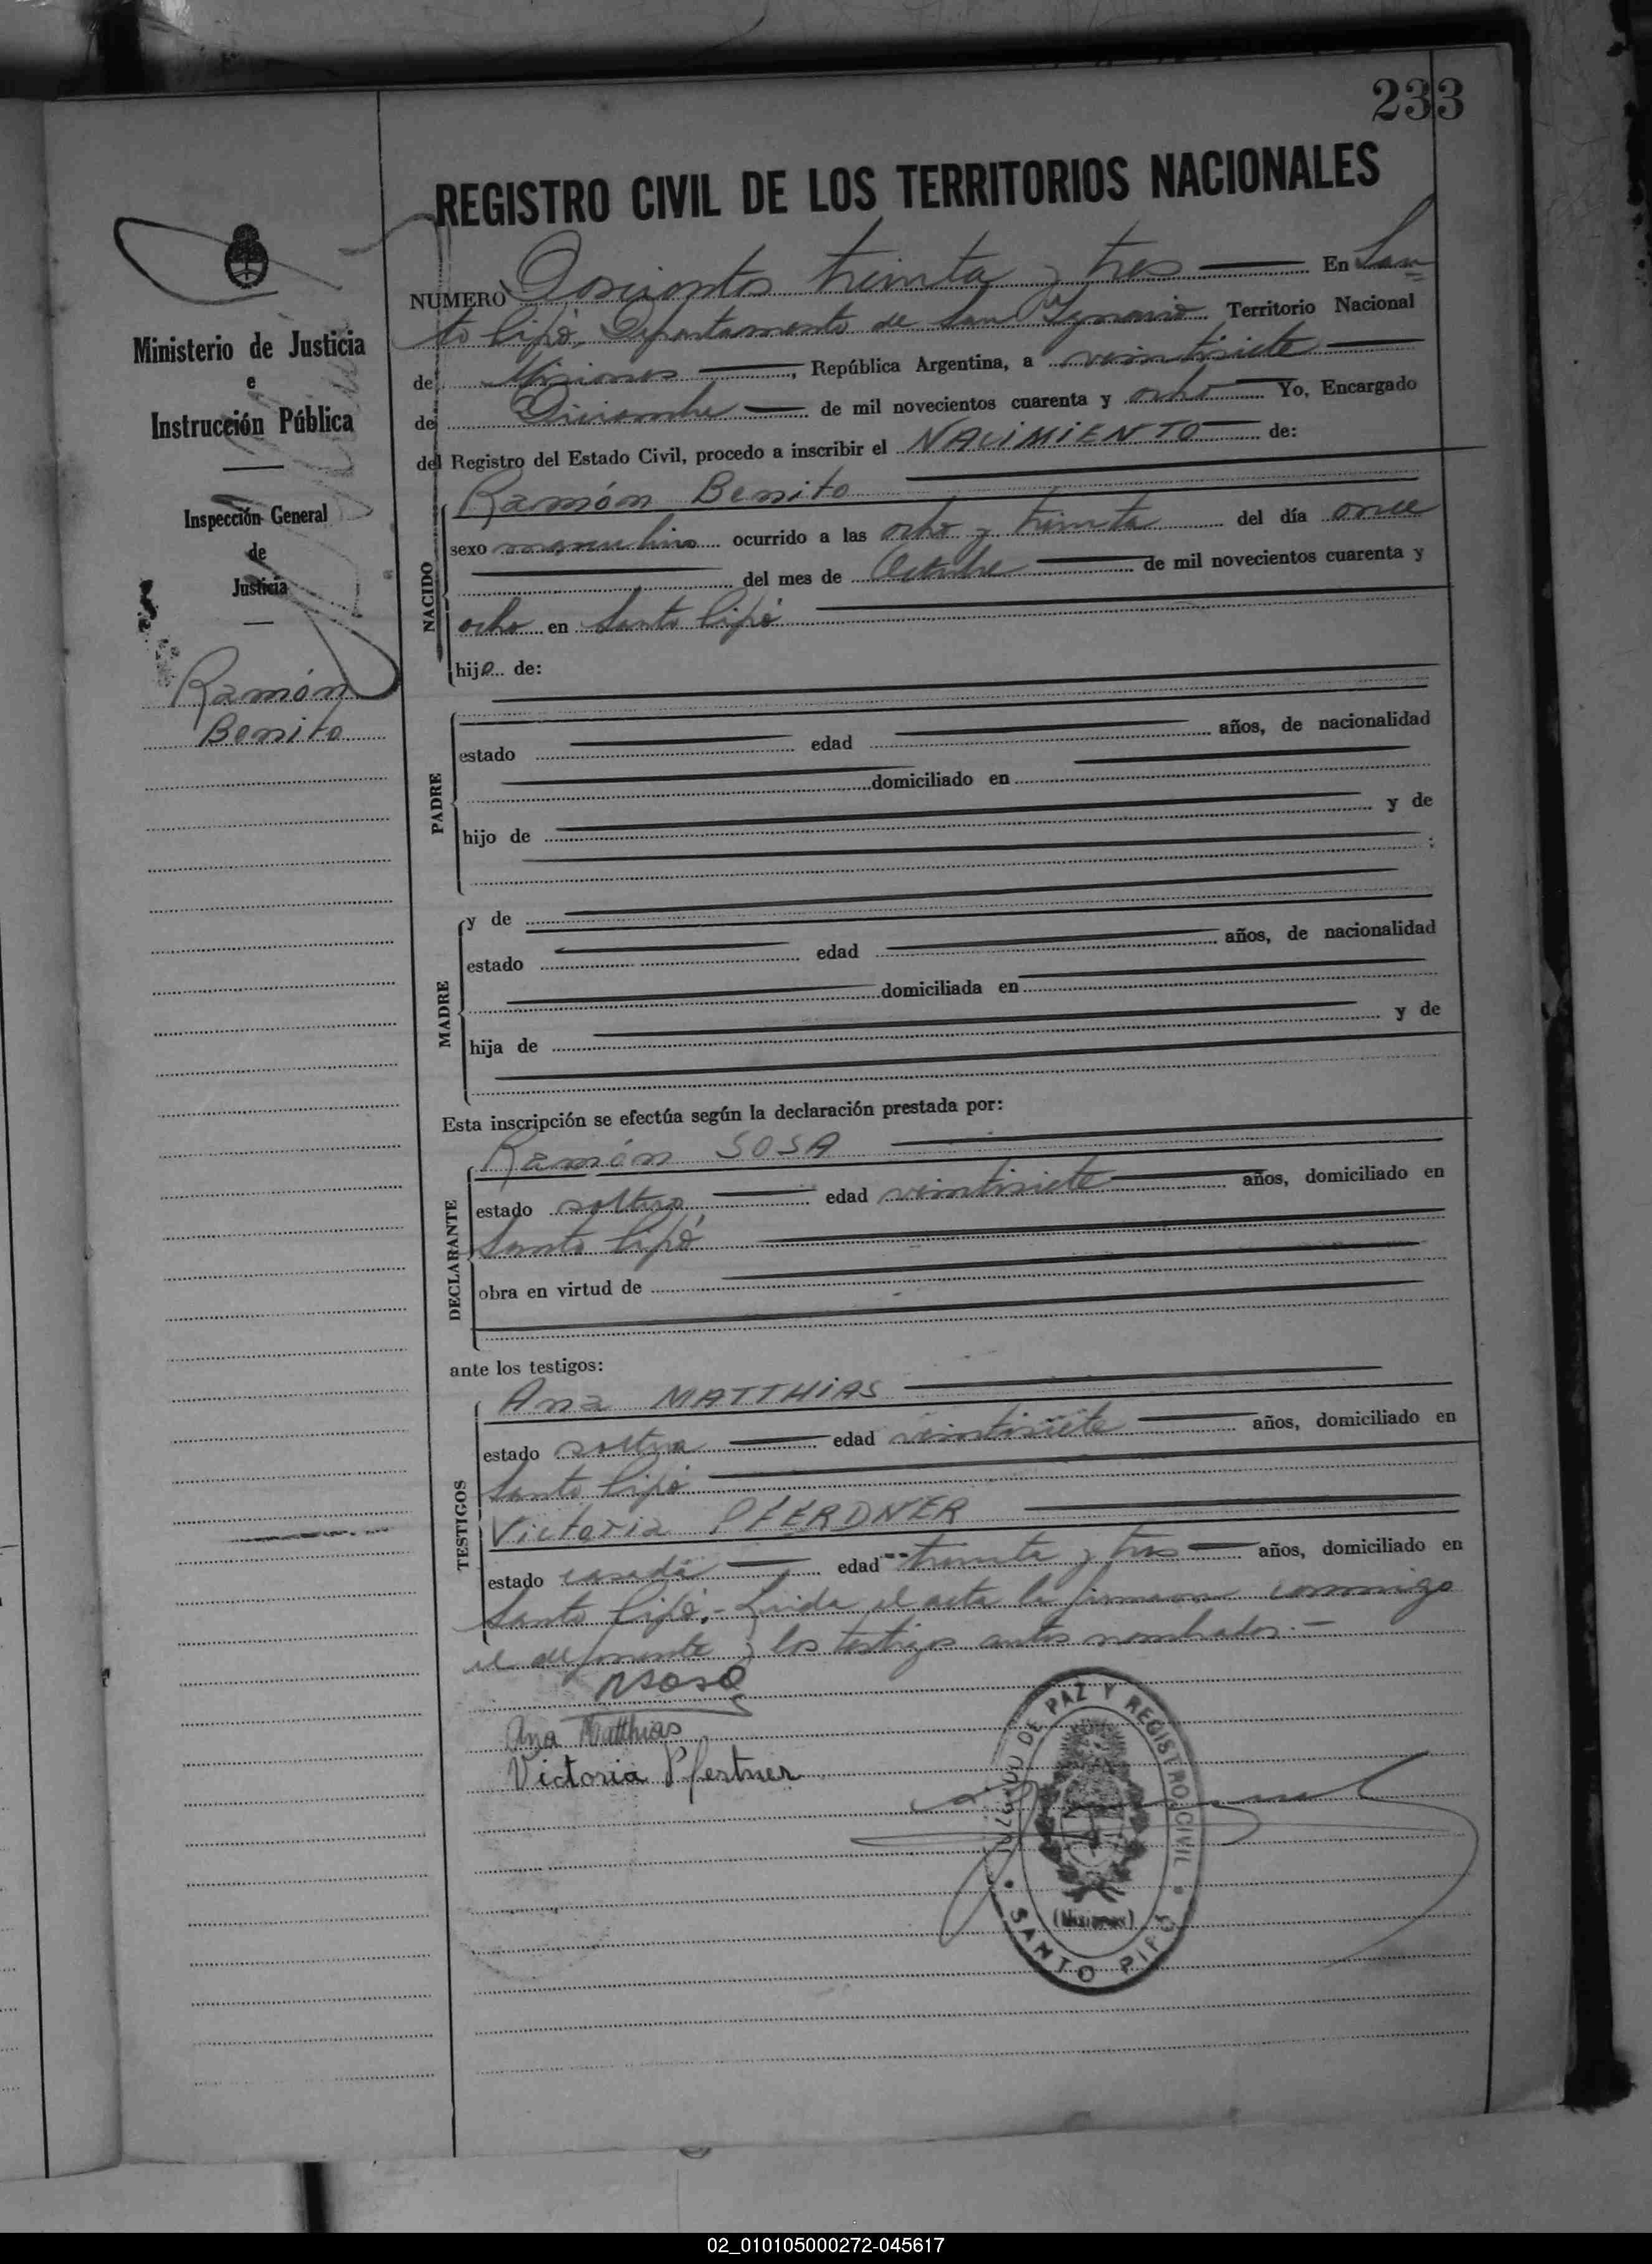 233
REGISTRO CIVIL DE LOS TERRITORIOS NACIONALES
Ministerio de Justicia
e
Instrucción Pública
Inspección General
de
Justicia
Ramón
Benito
NUMERO Doscientos treinta y tres En San
to Pipó, Departamento de San Ignacio Territorio Nacional
de Misiones, República Argentina, a veintisiete
de Diciembre de mil novecientos cuarenta y ocho Yo, Encargado
del Registro del Estado Civil, procedo a inscribir el NACIMIENTO de:
NACIDO
Ramón Benito
sexo masculino ocurrido a las ocho y treinta del día once
del mes de Octubre de mil novecientos cuarenta y
ocho en Santo Pipó
hijo de:
PADRE
estado edad años, de nacionalidad
domiciliado en
hijo de y de
;
MADRE
y de
estado edad años, de nacionalidad
domiciliada en
hija de y de
Esta inscripción se efectúa según la declaración prestada por:
DECLARANTE
Ramón SOSA
estado soltero edad veintisiete años, domiciliado en
Santo Pipó
obra en virtud de
ante los testigos:
TESTIGOS
Ana MATTHIAS
estado soltera edad veintisiete años, domiciliado en
Santo Pipó
Victoria PFERDNER
estado casada edad treinta y tres años, domiciliado en
Santo Pipó.- Leida el acta la firmaron conmigo
el deponente y los testigos antes nombrados.-
RSosa
Ana Matthias
Victoria Pfertner
JUZGADO DE PAZ Y REGISTRO CIVIL
(Misiones)
SANTO PIPÓ
02_010105000272-045617